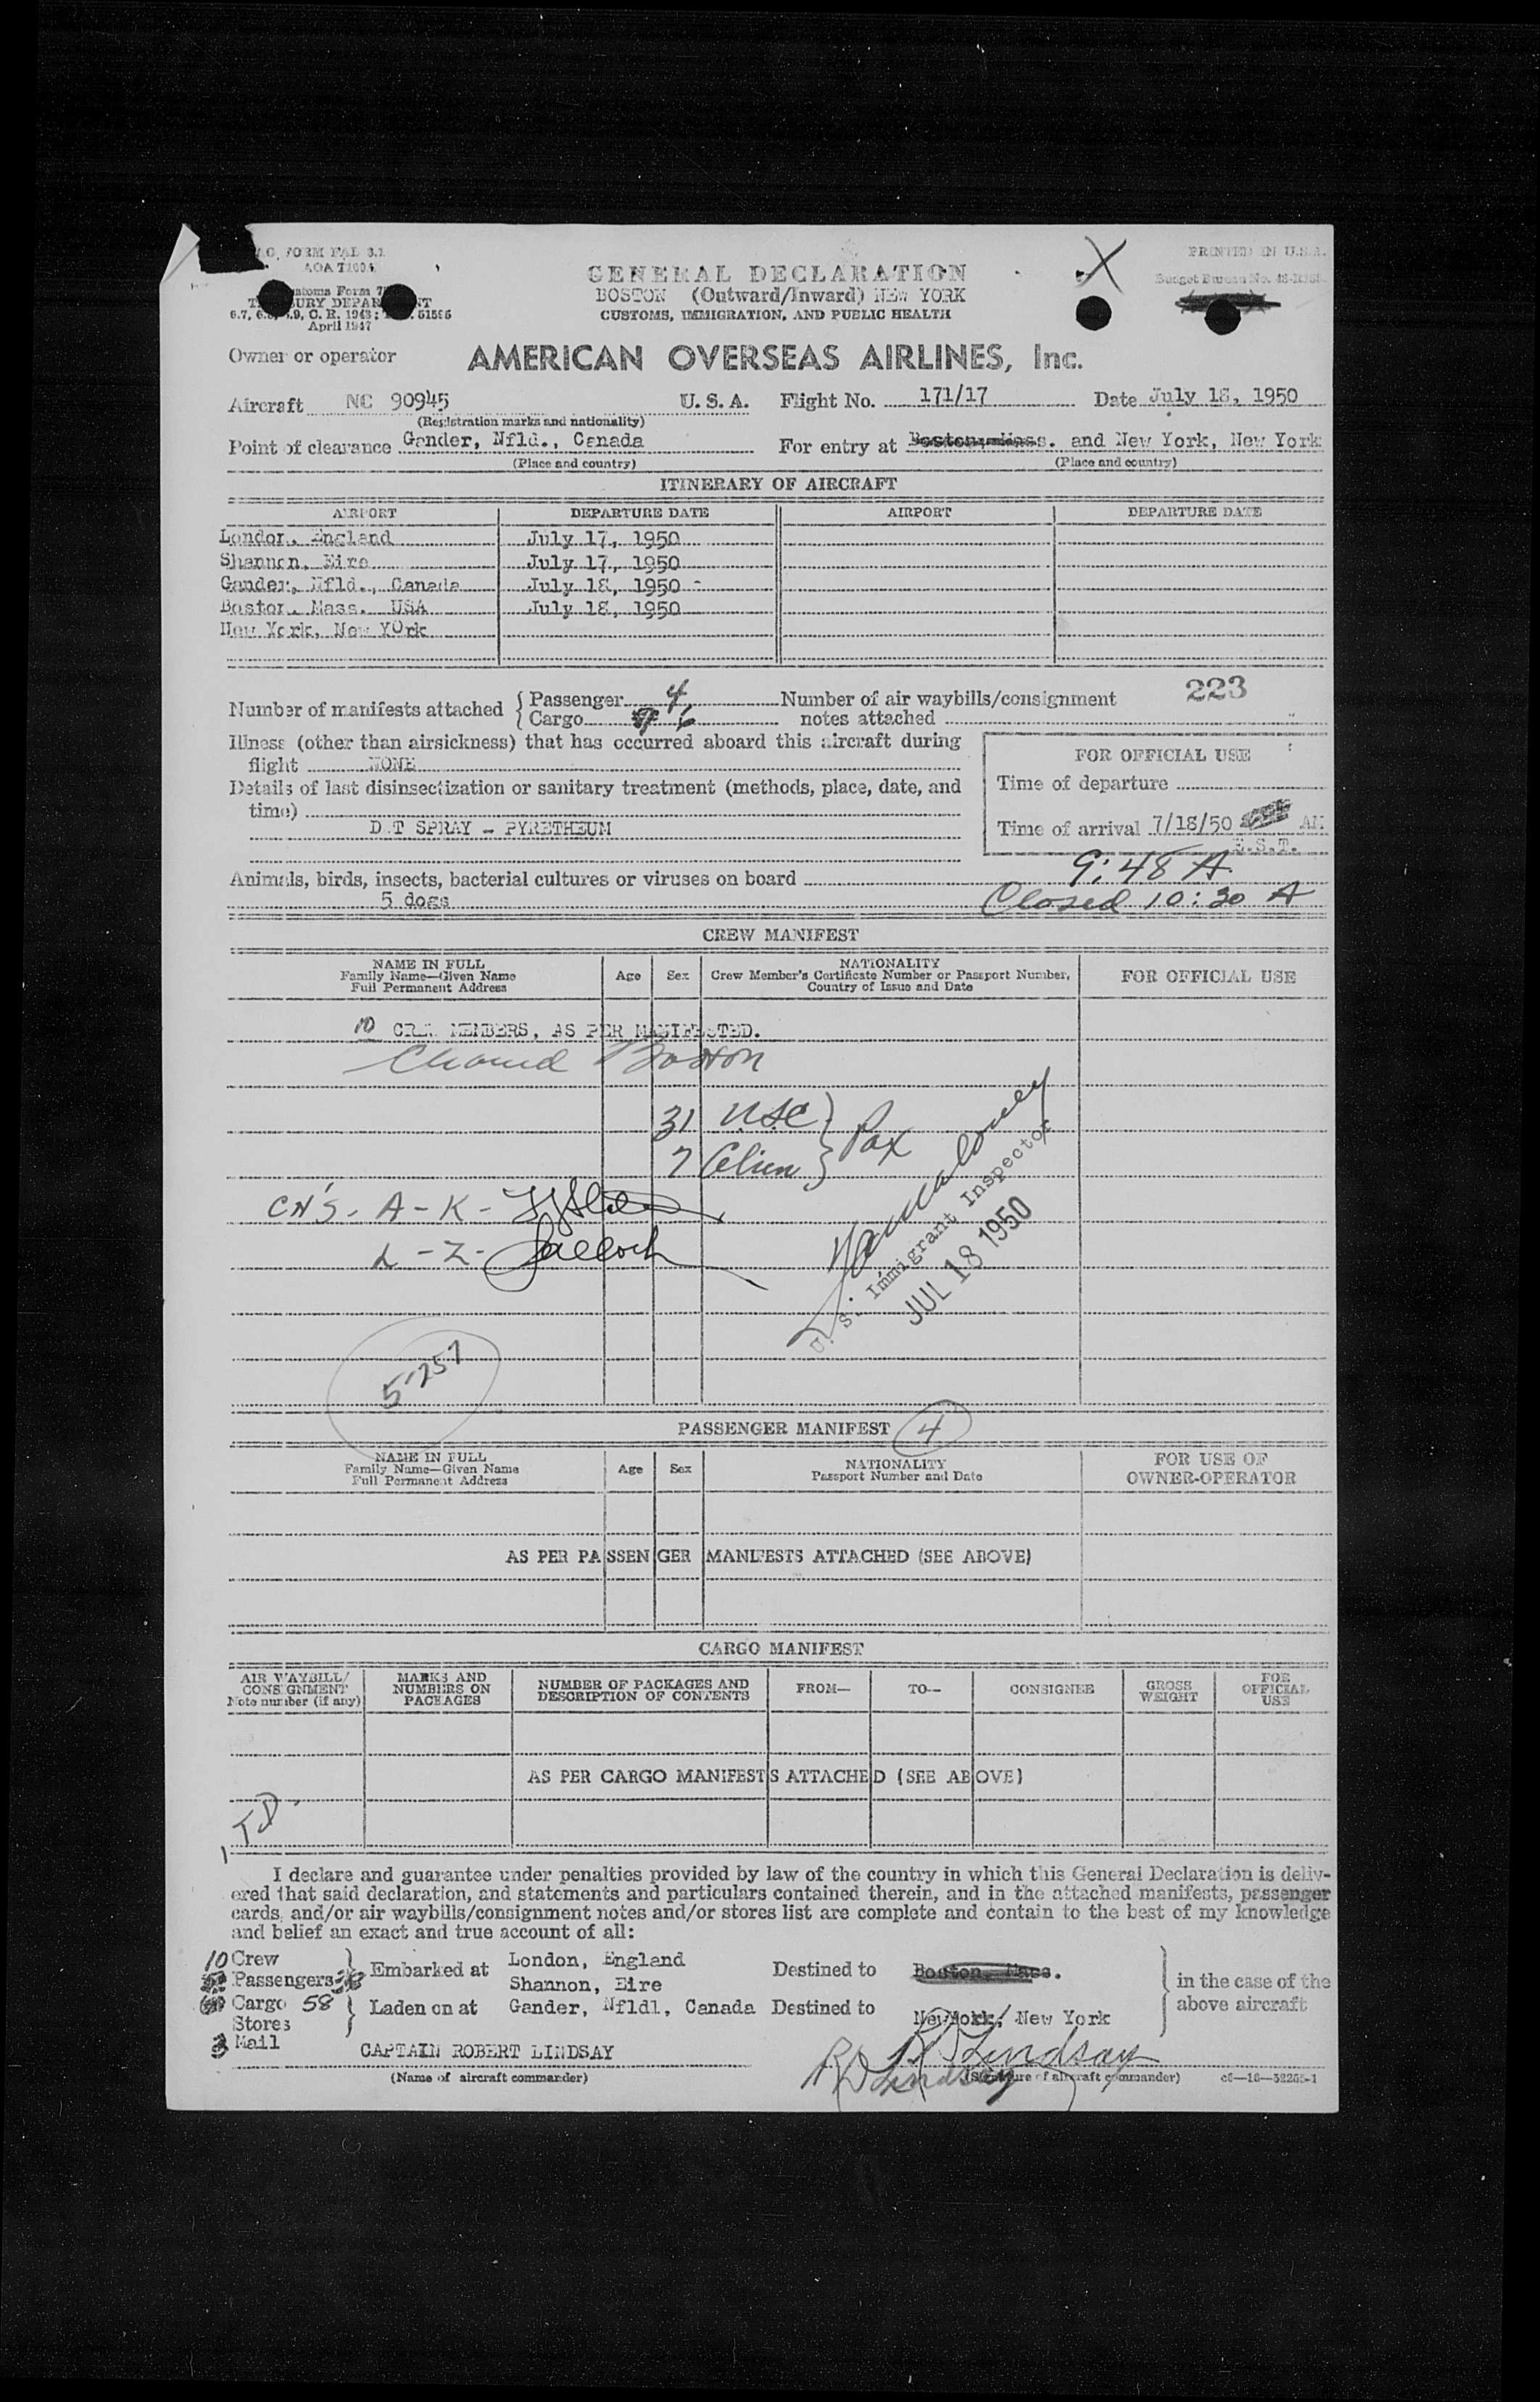 FORM
April 1947
PRINTED IN U.S.A.
GENERAL DECLARATION
BOSTON (Outward/Inward) NEW YORK
CUSTOMS, IMMIGRATION, AND PUBLIC HEALTH
Owner or operator AMERICAN OVERSEAS AIRLINES, Inc.
Aircraft NC 90945 U. S. A. Flight No. 171/17 Date July 18, 1950
(Registration marks and nationality)
Point of clearance Gander, Nfld., Canada For entry at and New York, New York
(Place and country) (Place and country)
ITINERARY OF AIRCRAFT
AIRPORT DEPARTURE DATE AIRPORT DEPARTURE DATE
London, England July 17, 1950
Shannon, Eire July 17, 1950
Gander, Nfld., Canada July 18, 1950 -
Boston, Mass. USA July 18, 1950
New York, New YOrk
223
Number of manifests attached { Passenger 4 Number of air waybills/consignment
Cargo 6 notes attached
Illness (other than airsickness) that has occurred aboard this aircraft during
flight NONE
Details of last disinsectization or sanitary treatment (methods, place, date, and
time)
D T SPRAY - PYRETHEUM
FOR OFFICIAL USE
Time of departure
Time of arrival 7/18/50 AM
E.S.T.
9:48 A
Animals, birds, insects, bacterial cultures or viruses on board
5 dogs
Closed 10:30 A
CREW MANIFEST
NAME IN FULL
Family Name—Given Name
Full Permanent Address
Age
Sex
NATIONALITY
Crew Member's Certificate Number or Passport Number,
Country of Issue and Date
FOR OFFICIAL USE
10 CREW MEMBERS, AS PER MANIFESTED.
Boston
31 USC } Pax
7 Alien
CH'S - A - K -
L - Z -
U. S. Immigrant Inspector
JUL 18 1950
5-257
PASSENGER MANIFEST 4
NAME IN FULL
Family Name—Given Name
Full Permanent Address
Age
Sex
NATIONALITY
Passport Number and Date
FOR USE OF
OWNER-OPERATOR
AS PER PASSENGER MANIFESTS ATTACHED (SEE ABOVE)
CARGO MANIFEST
AIR WAYBILL/
CONSIGNMENT
Note number (if any)
MARKS AND
NUMBERS ON
PACKAGES
NUMBER OF PACKAGES AND
DESCRIPTION OF CONTENTS
FROM—
TO—
CONSIGNEE
GROSS
WEIGHT
FOR
OFFICIAL
USE
AS PER CARGO MANIFESTS ATTACHED (SEE ABOVE)
I declare and guarantee under penalties provided by law of the country in which this General Declaration is deliv-
ered that said declaration, and statements and particulars contained therein, and in the attached manifests, passenger
cards, and/or air waybills/consignment notes and/or stores list are complete and contain to the best of my knowledge
and belief an exact and true account of all:
10 Crew
Passengers 38 } Embarked at London, England Destined to Boston, Mass.
Shannon, Eire
Cargo 58 } Laden on at Gander, Nfldl, Canada Destined to New York, New York
Stores
3 Mail
in the case of the
above aircraft
CAPTAIN ROBERT LINDSAY
R D Lindsay
R D Lindsay
(Name of aircraft commander) (Signature of aircraft commander)